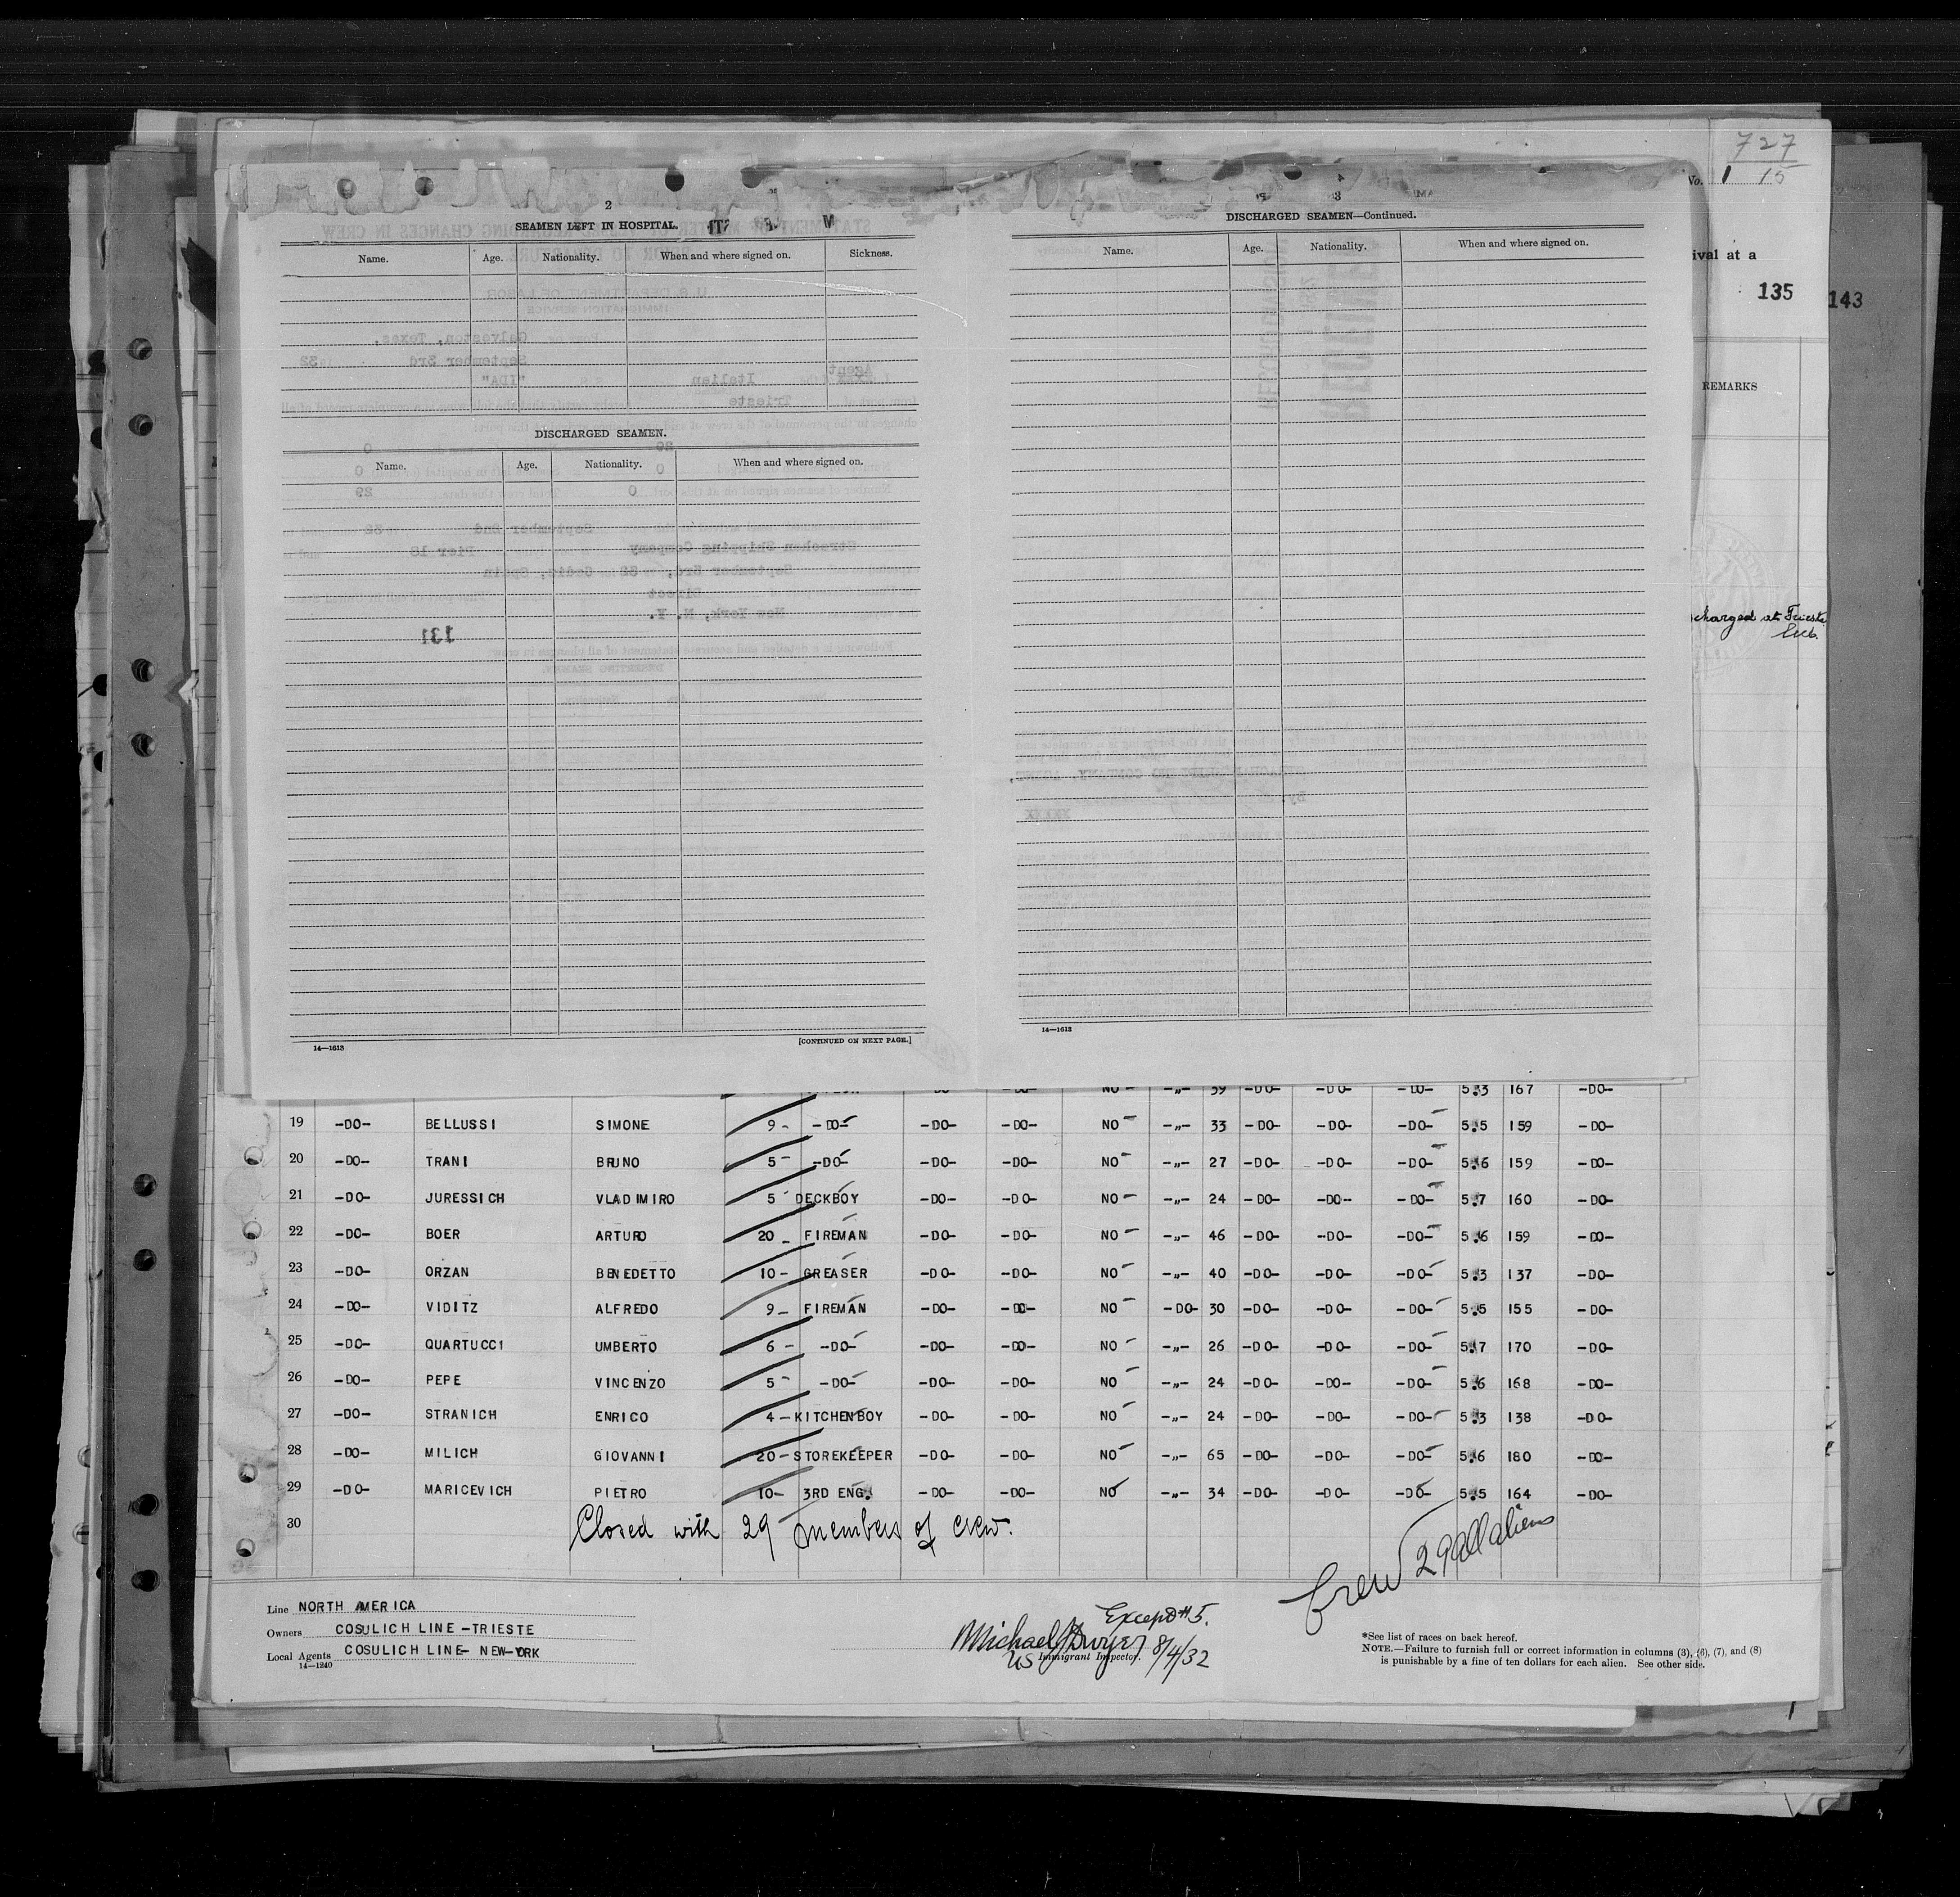 727
No. 1 15
2
SEAMEN LEFT IN HOSPITAL.
Name. Age. Nationality. When and where signed on. Sickness.
DISCHARGED SEAMEN.
Name. Age. Nationality. When and where signed on.
14—1613 [CONTINUED ON NEXT PAGE.]
3
DISCHARGED SEAMEN—Continued.
Name. Age. Nationality. When and where signed on.
14—1613
ival at a
135
143
REMARKS
charged at Trieste
39 -DO- -DO- -DO- 5.3 167 -DO-
19 -DO- BELLUSSI SIMONE 9- -DO- -DO- -DO- NO -"- 33 -DO- -DO- -DO- 5.5 159 -DO-
20 -DO- TRANI BRUNO 5- -DO- -DO- -DO- NO -"- 27 -DO- -DO- -DO- 5.6 159 -DO-
21 -DO- JURESSICH VLADIMIRO 5- DECKBOY -DO- -DO- NO -"- 24 -DO- -DO- -DO- 5.7 160 -DO-
22 -DO- BOER ARTURO 20- FIREMAN -DO- -DO- NO -"- 46 -DO- -DO- -DO- 5.6 159 -DO-
23 -DO- ORZAN BENEDETTO 10- GREASER -DO- -DO- NO -"- 40 -DO- -DO- -DO- 5.3 137 -DO-
24 -DO- VIDITZ ALFREDO 9- FIREMAN -DO- -DO- NO -DO- 30 -DO- -DO- -DO- 5.5 155 -DO-
25 -DO- QUARTUCCI UMBERTO 6- -DO- -DO- -DO- NO -"- 26 -DO- -DO- -DO- 5.7 170 -DO-
26 -DO- PEPE VINCENZO 5- -DO- -DO- -DO- NO -"- 24 -DO- -DO- -DO- 5.6 168 -DO-
27 -DO- STRANICH ENRICO 4- KITCHENBOY -DO- -DO- NO -"- 24 -DO- -DO- -DO- 5.3 138 -DO-
28 -DO- MILICH GIOVANNI 20- STOREKEEPER -DO- -DO- NO -"- 65 -DO- -DO- -DO- 5.6 180 -DO-
29 -DO- MARICEVICH PIETRO 10- 3RD ENG. -DO- -DO- NO -"- 34 -DO- -DO- -DO- 5.5 164 -DO-
30 Closed with 29 members of crew.
Crew 29 all aliens
Except #5.
Line NORTH AMERICA
Owners COSULICH LINE -TRIESTE
Local Agents COSULICH LINE- NEW-YORK
14—1240
Michael Dwyer 8/4/32
US Immigrant Inspector.
*See list of races on back hereof.
NOTE.—Failure to furnish full or correct information in columns (3), (6), (7), and (8)
is punishable by a fine of ten dollars for each alien. See other side.